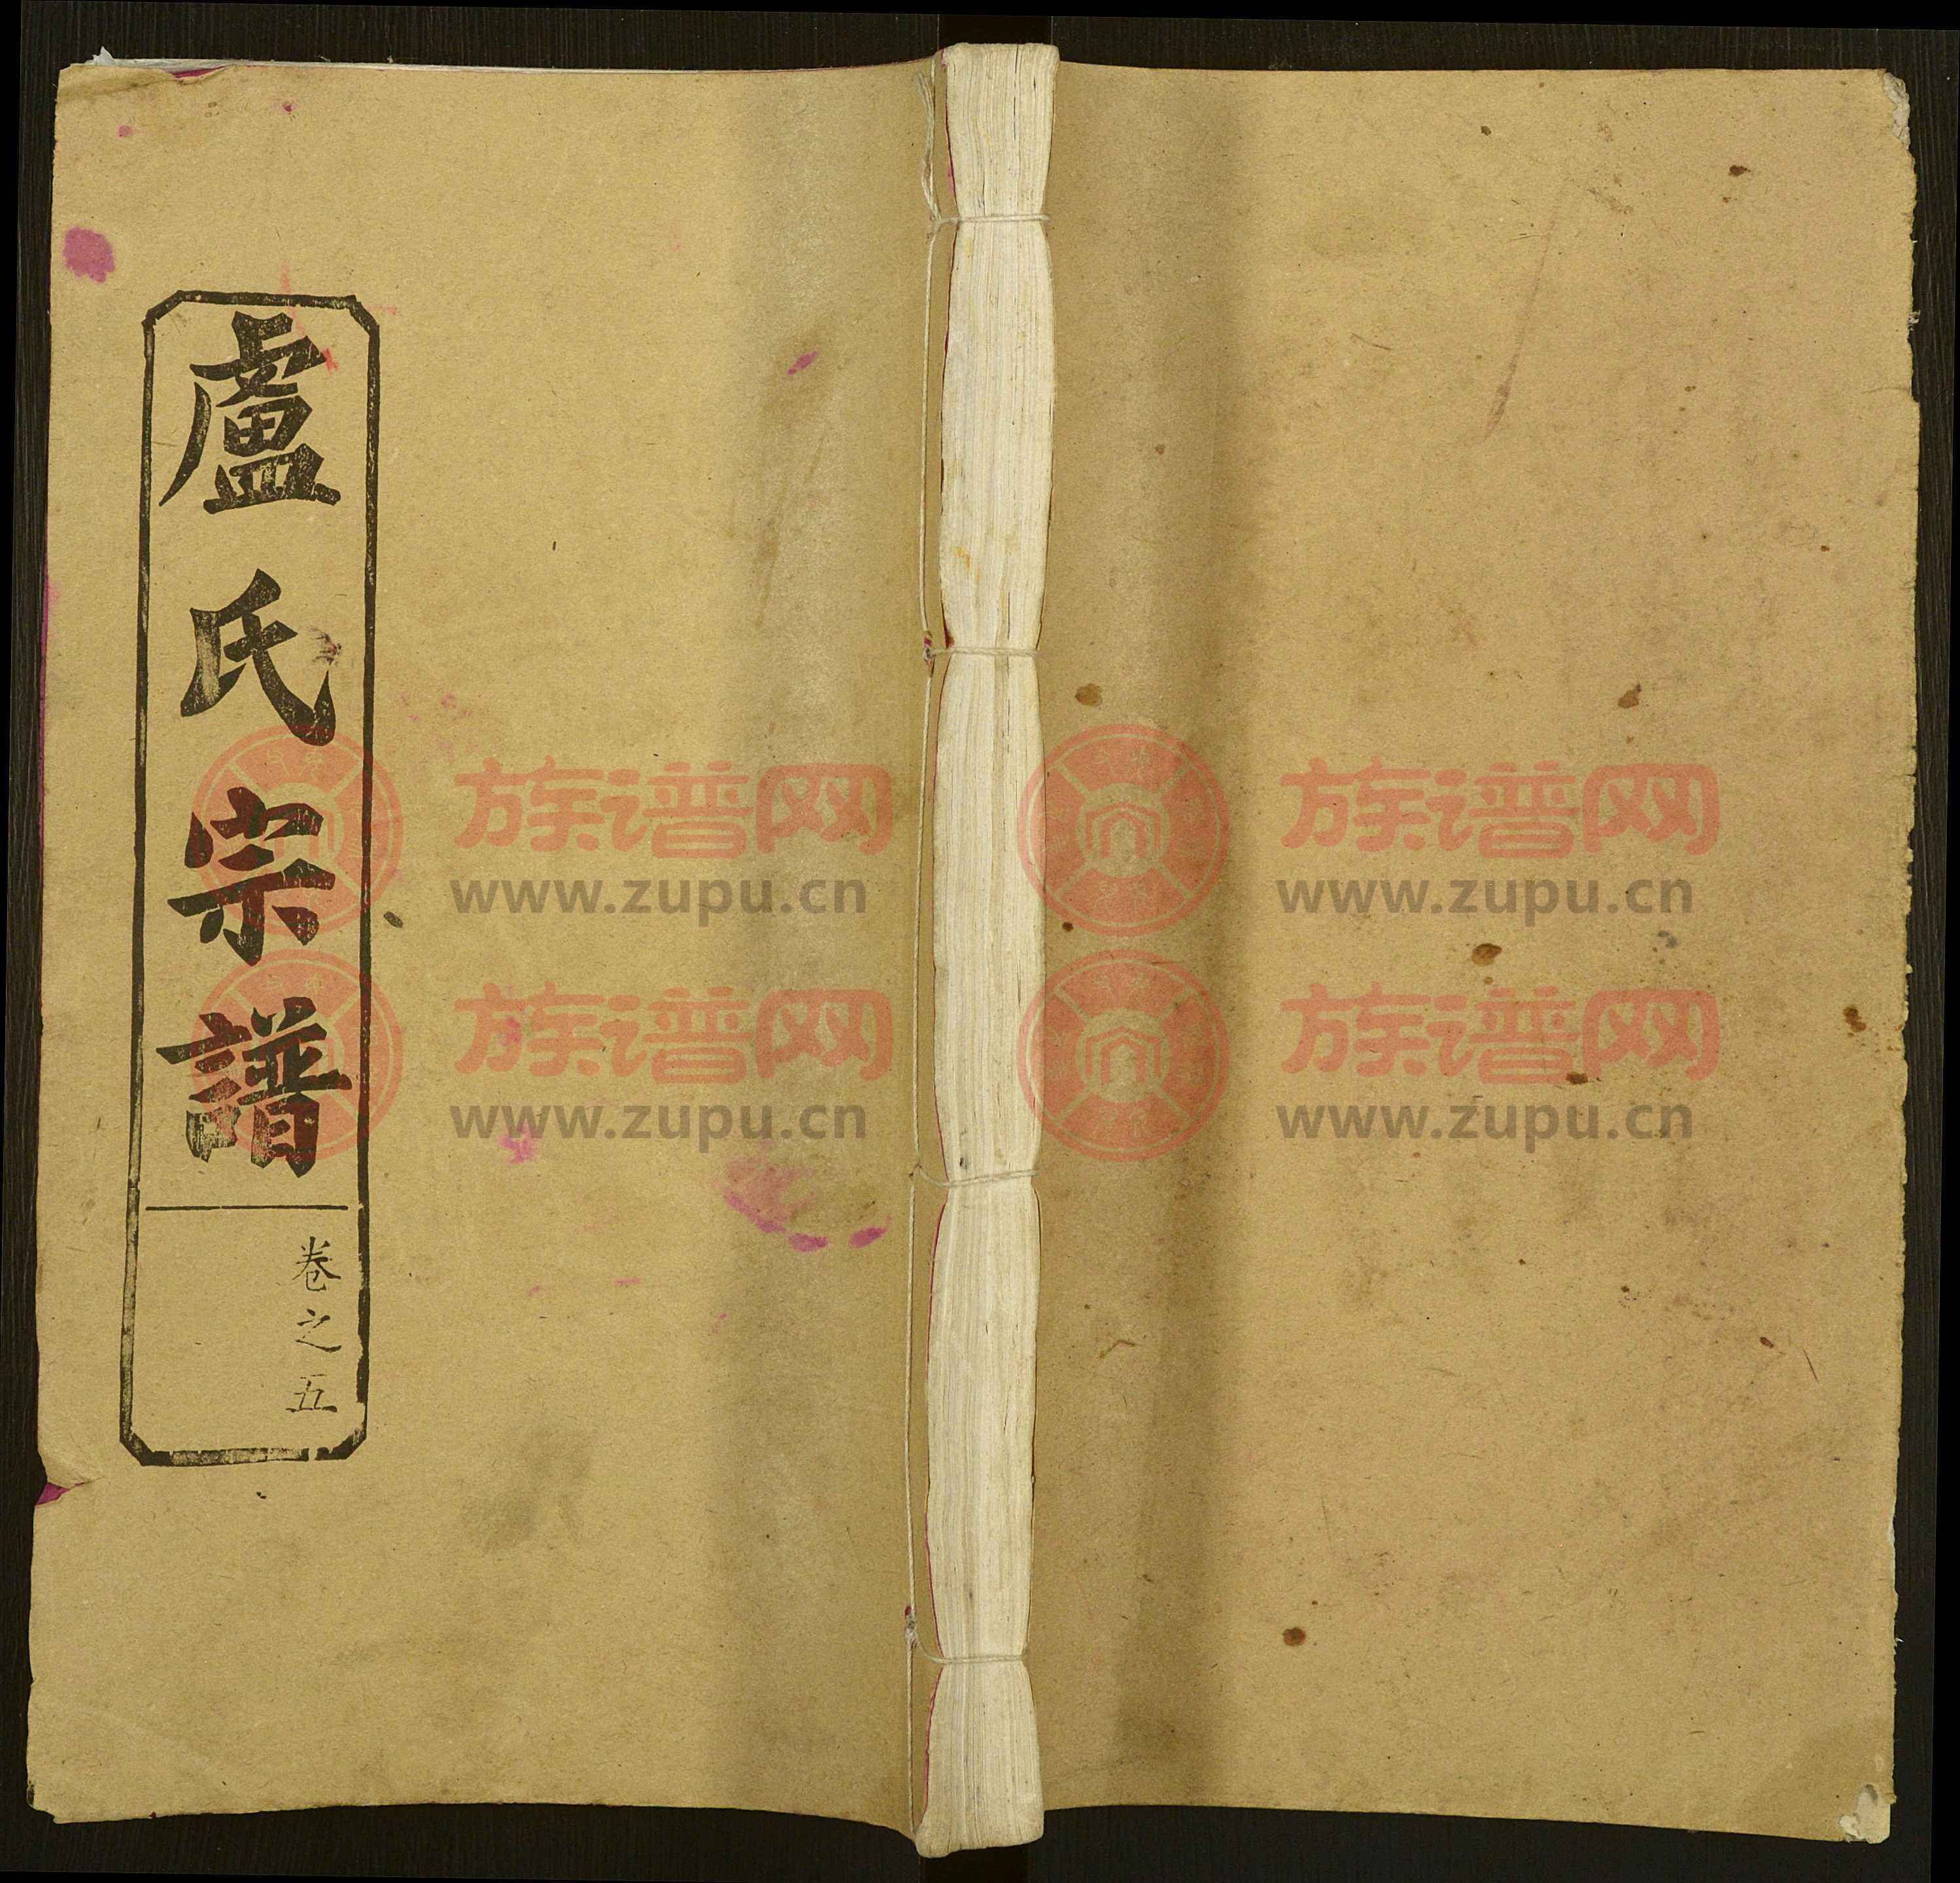 盧氏宗譜
卷之五
族谱网
www.zupu.cn
族谱网
www.zupu.cn
族谱网
www.zupu.cn
族谱网
www.zupu.cn